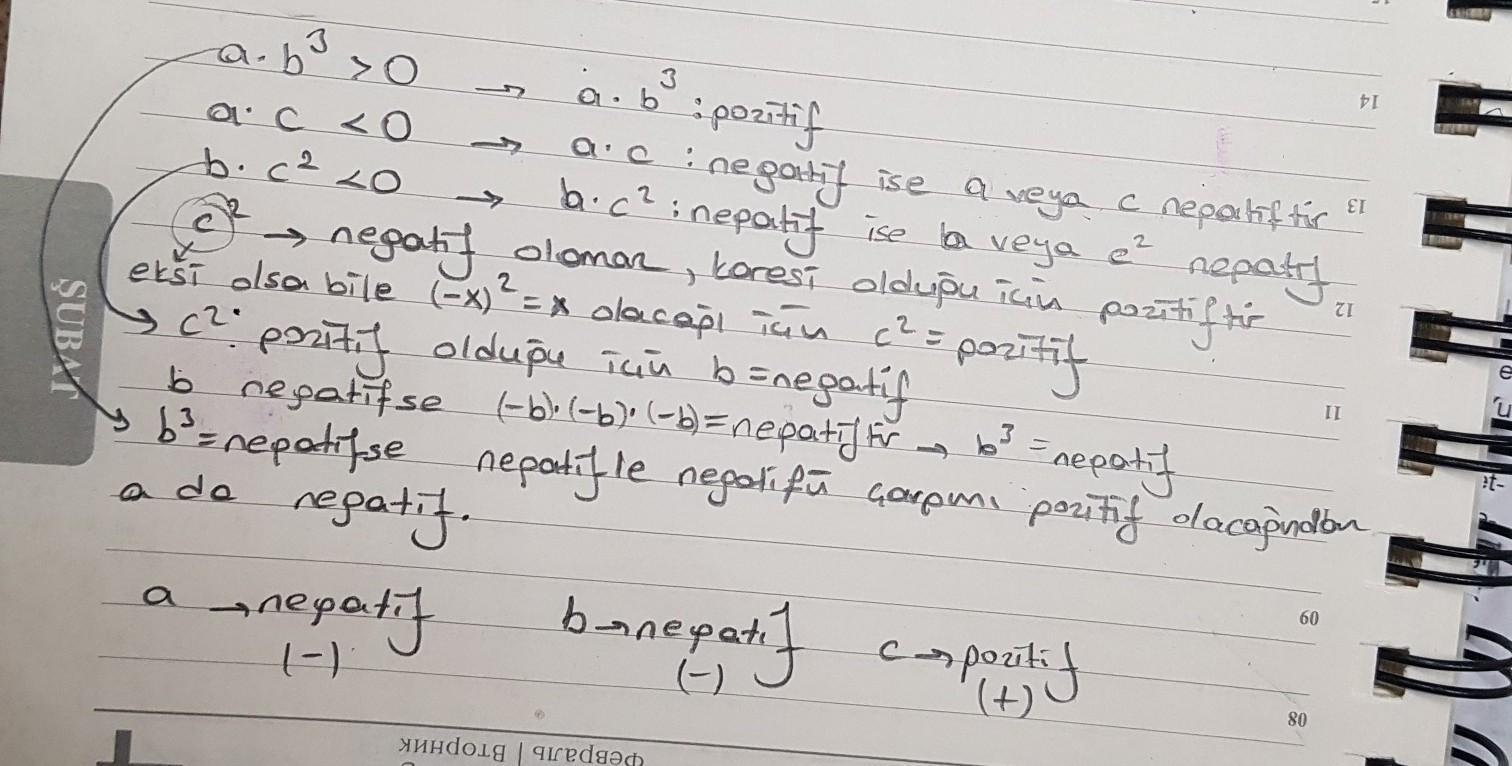 a·b³ > 0 → a·b³ : pozitif
a·c < 0 → a·c : negatif ise a veya c negatiftir
b·c² < 0 → b·c² : negatif ise b veya c² negatif
c² → negatif olamaz, karesi olduğu için pozitiftir
eksi olsa bile (-x)² = x olacağı için c² = pozitif
c² : pozitif olduğu için b = negatif
b negatifse (-b)·(-b)·(-b) = negatiftir → b³ = negatif
b³ = negatifse negatifle negatifin çarpımı pozitif olacağından
a da negatif.
a → negatif b → negatif c → pozitif
(-) (-) (+)
ŞUBAT
14
13
12
11
09
08
Февраль | Вторник